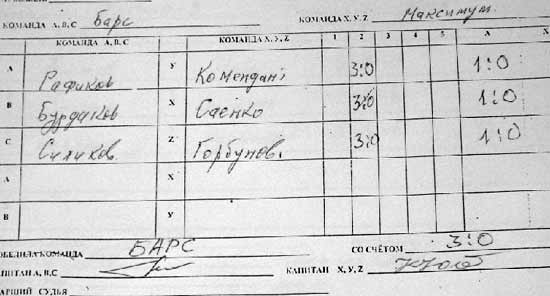 КОМАНДА А, В, С Барс КОМАНДА X, У, Z Максимум
КОМАНДА А, В, С КОМАНДА X, У, Z 1 2 3 4 5 А X
А Рафиков У Комендант 3:0 1:0
В Бурдаков X Саенко 3:0 1:0
С Силиков Z Горбунов 3:0 1:0
А X
В У
ОБЕДИЛА КОМАНДА БАРС СО СЧЁТОМ 3:0
АПИТАН А, В, С КАПИТАН X, У, Z
АРШИЙ СУДЬЯ